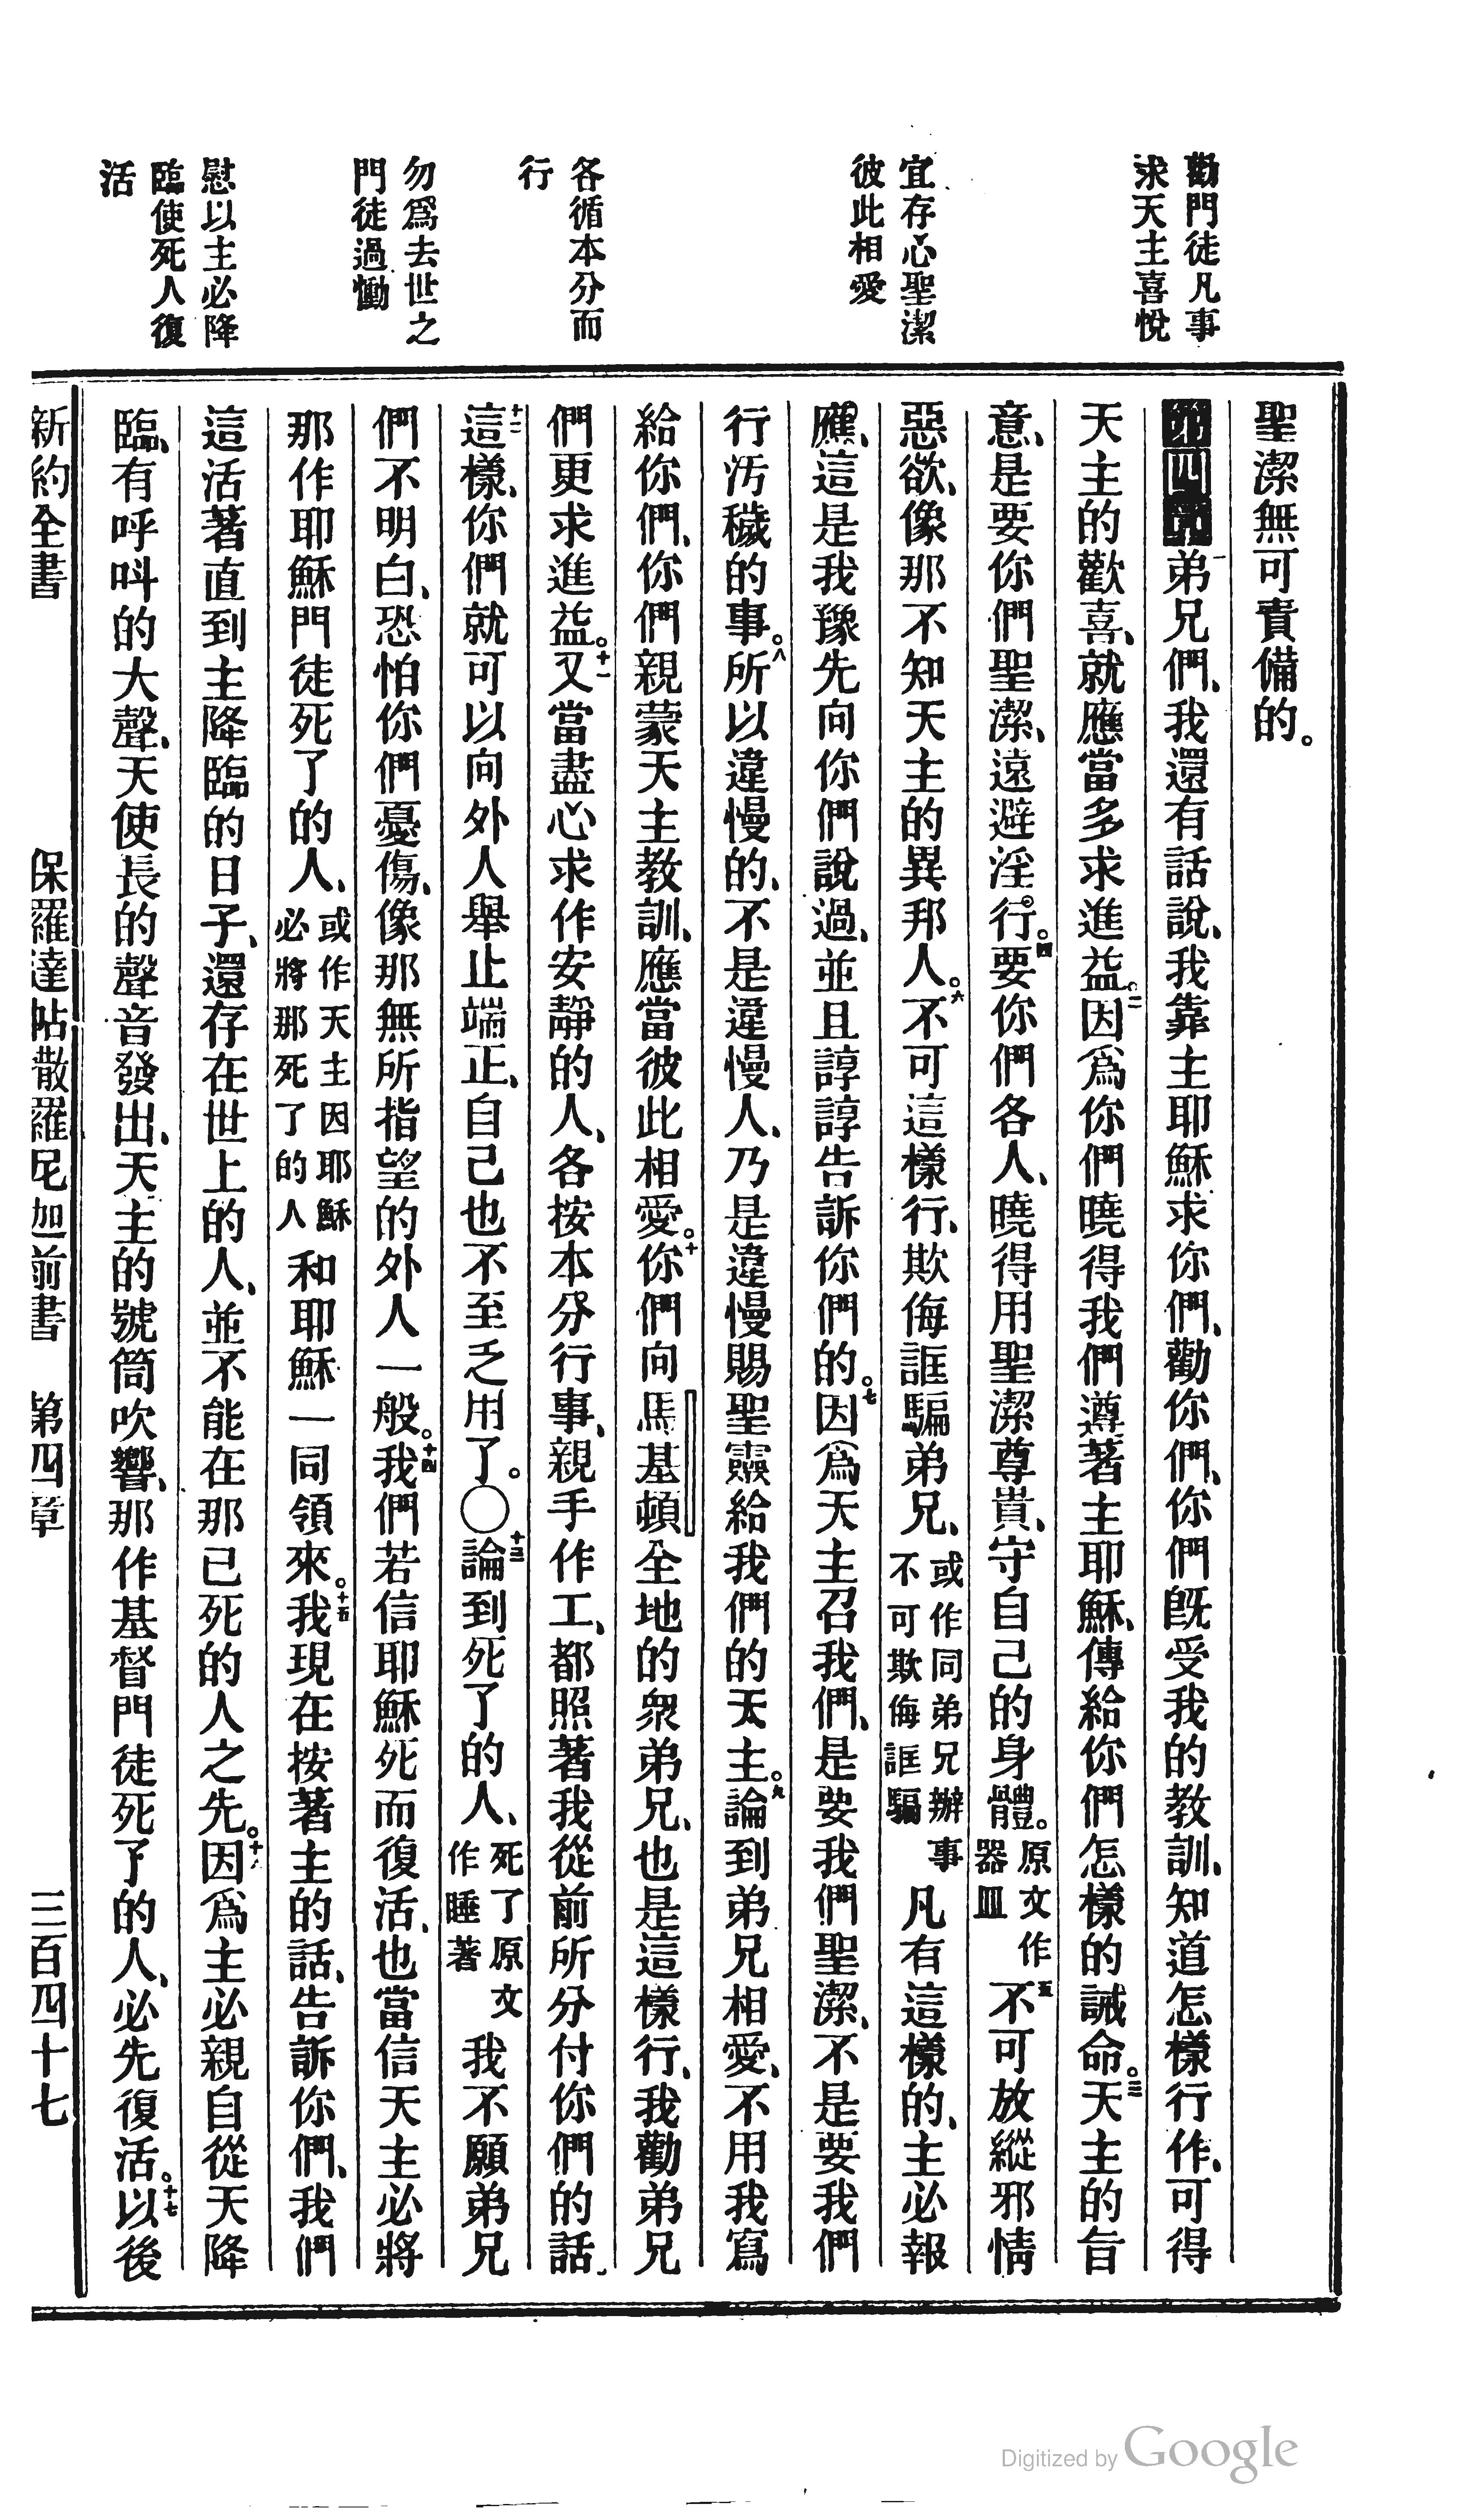 勸門徒凡事
求天主喜悅
宜存心聖潔
彼此相愛
各循本分而
行
勿爲去世之
門徒過慟
慰以主必降
臨使死人復
活
聖潔無可責備的。
第四章一弟兄們、我還有話說、我靠主耶穌求你們、勸你們、你們旣受我的教訓、知道怎樣行作、可得
天主的歡喜、就應當多求進益。二因爲你們曉得我們遵著主耶穌、傳給你們怎樣的誡命。三天主的旨
意、是要你們聖潔、遠避淫行。四要你們各人、曉得用聖潔尊貴、守自己的身體。原文作器皿五不可放縱邪情
惡欲、像那不知天主的異邦人。六不可這樣行、欺侮誆騙弟兄、或作同弟兄辦事不可欺侮誆騙凡有這樣的、主必報
應、這是我豫先向你們說過、並且諄諄告訴你們的。七因爲天主召我們、是要我們聖潔、不是要我們
行汚穢的事。八所以違慢的、不是違慢人、乃是違慢賜聖靈給我們的天主。九論到弟兄相愛、不用我寫
給你們、你們親蒙天主教訓、應當彼此相愛。十你們向馬基頓全地的衆弟兄、也是這樣行、我勸弟兄
們更求進益。十一又當盡心求作安靜的人、各按本分行事、親手作工、都照著我從前所分付你們的話、
十二這樣、你們就可以向外人舉止端正、自己也不至乏用了。〇十三論到死了的人、死了原文作睡著我不願弟兄
們不明白、恐怕你們憂傷、像那無所指望的外人一般。十四我們若信耶穌死而復活、也當信天主必將
那作耶穌門徒死了的人、或作天主因耶穌必將那死了的人和耶穌一同領來。十五我現在按著主的話、告訴你們、我們
這活著直到主降臨的日子、還存在世上的人、並不能在那已死的人之先。十六因爲主必親自從天降
臨、有呼呌的大聲、天使長的聲音發出、天主的號筒吹響、那作基督門徒死了的人、必先復活。十七以後
新約全書 保羅達帖撒羅尼迦前書 第四章 三百四十七
Digitized by Google